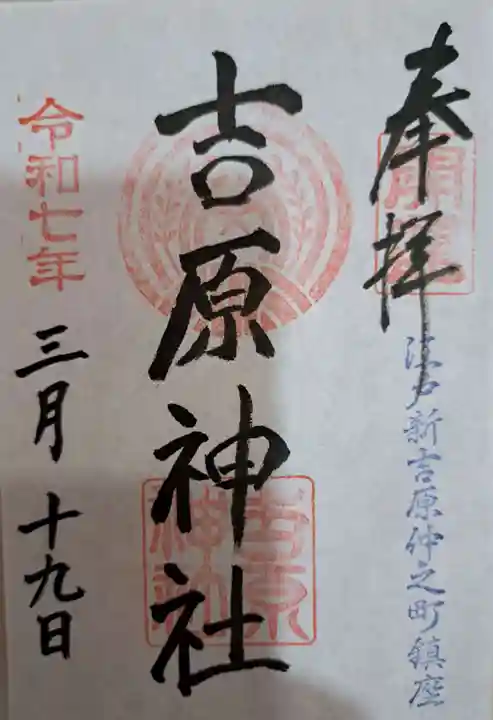 奉拝
江戸新吉原仲之町鎮座
吉原神社
吉原
神社
令和七年
三月十九日